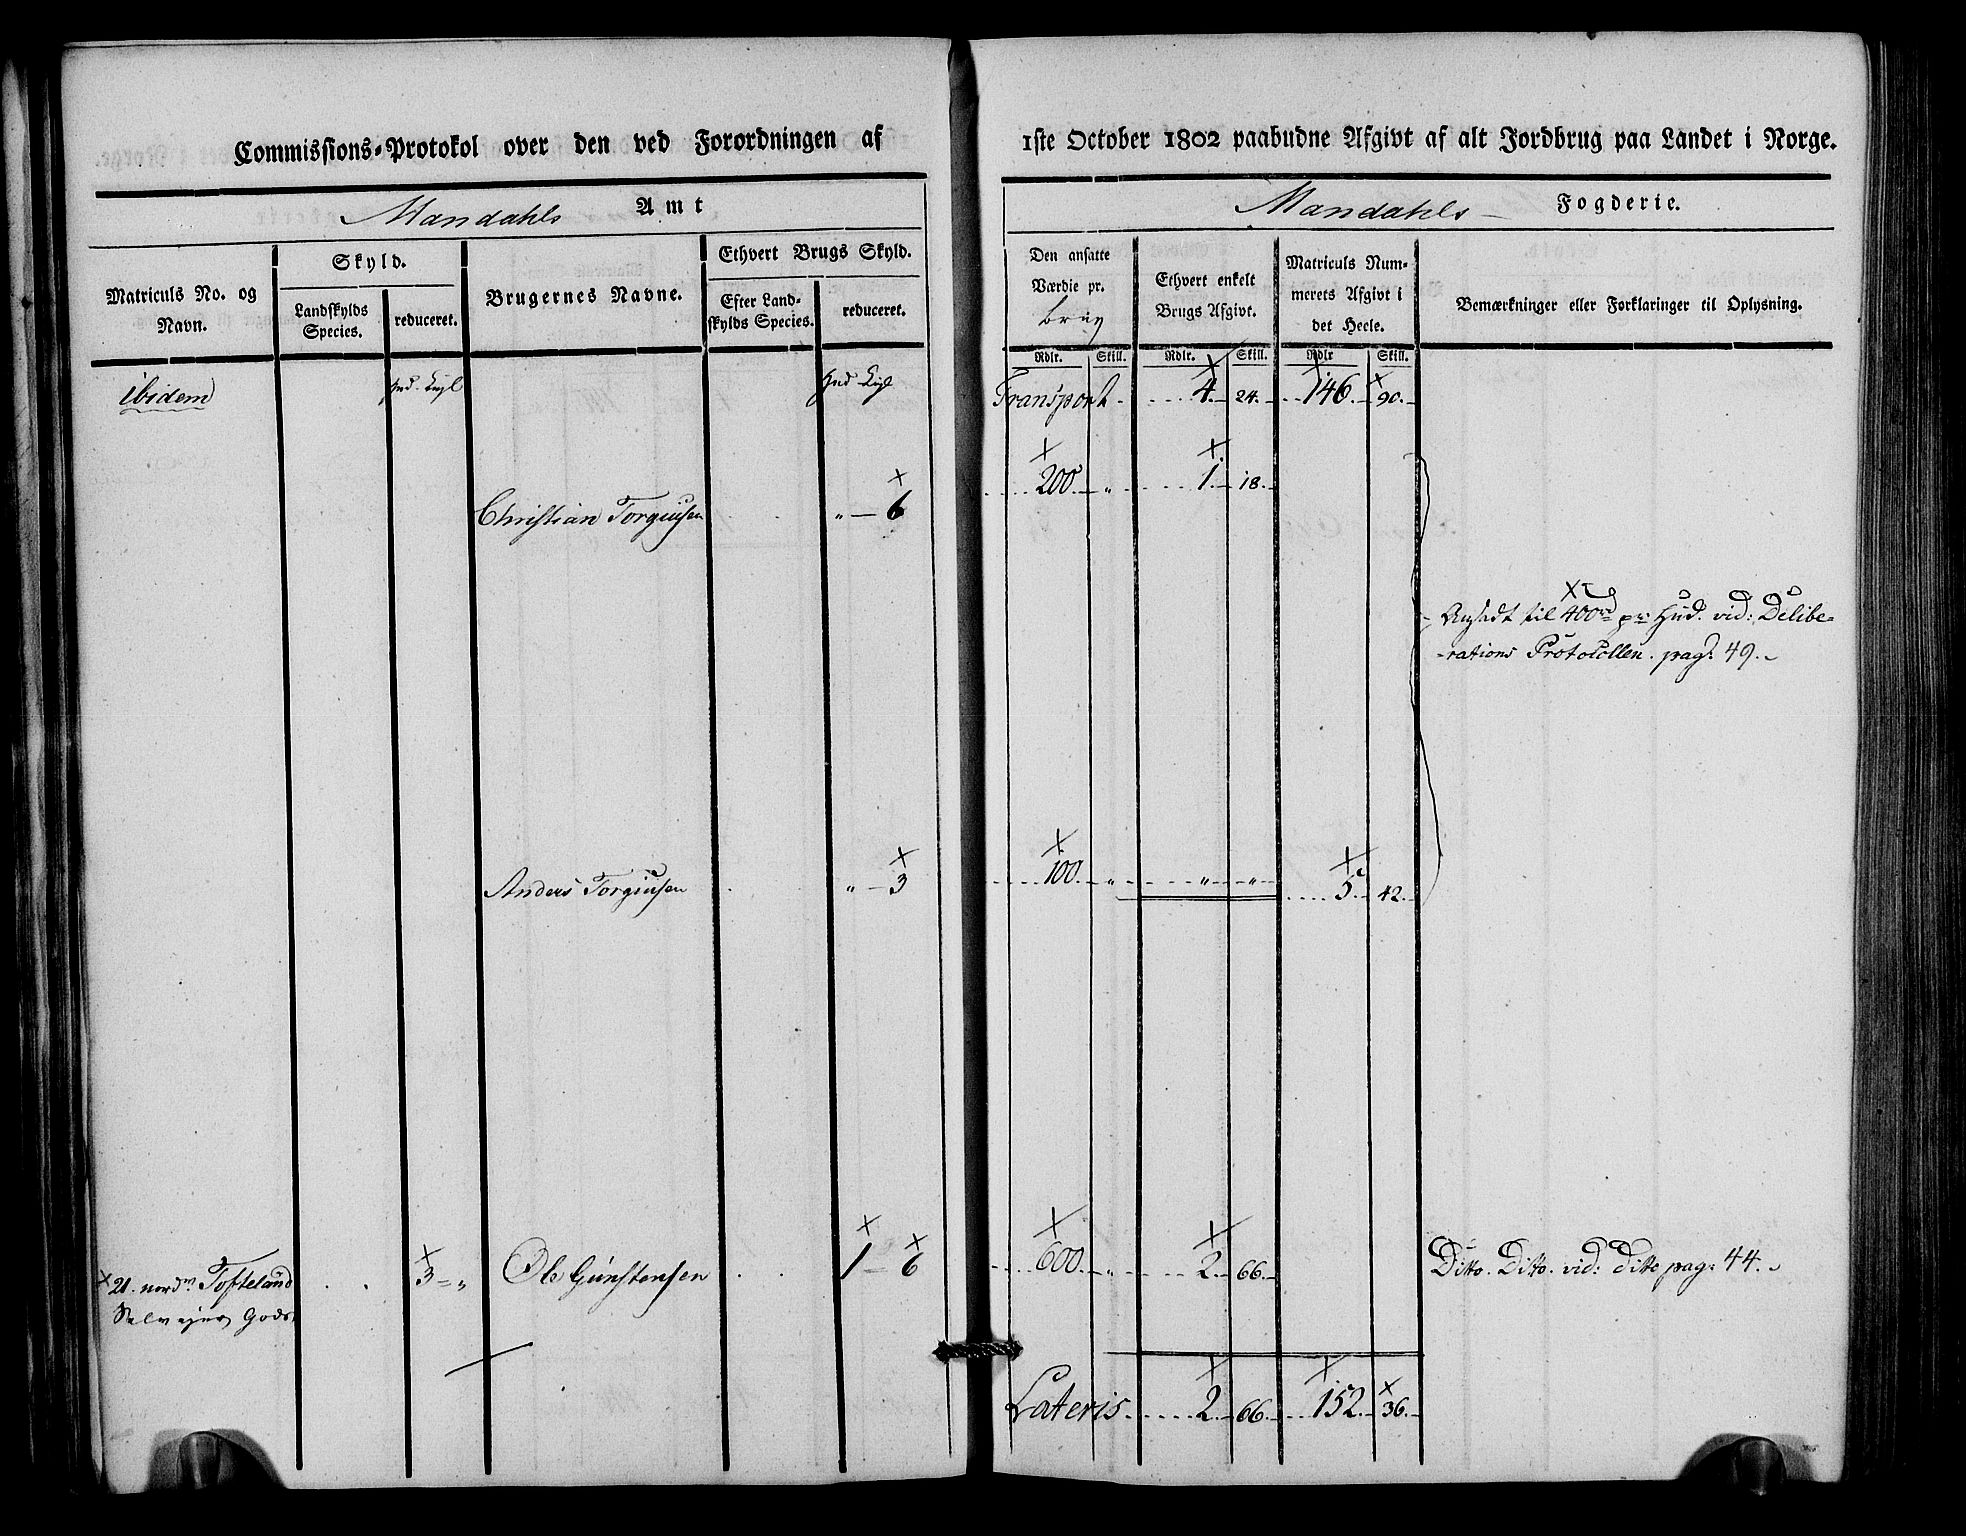 Commissions-Protokol over den ved Forordningen af
Mandahls Amt
Matriculs No. og Navn.
Skyld.
Landskylds Species.
reduceret.
Brugernes Navne.
Ethvert Brugs Skyld.
Efter Landskylds Species.
reduceret.
ibidem
Christian Torgiusen " — 6
Anders Torgiusen " — 3
21. nordn: Tofteland . . 3 - " Ole Gunstensen . . 1 - 6
Selvejer Gods
1ste October 1802 paabudne Afgivt af alt Jordbrug paa Landet i Norge.
Mandahls - Fogderie.
Den ansatte Værdie pr.
brug
Ethvert enkelt Brugs Afgivt.
Matriculs Nummerets Afgivt i det Heele.
Bemærkninger eller Forklaringer til Oplysning.
Rdlr. Skill. Rdlr. Skill. Rdlr Skill.
Transport 4. 24. 146. 90.
200. " 1. 18.
Ansadt til 400rd pr: Hud. vid: Delibe-
-rations Protocollen. pag: 49.
100. " " " 5. 42.
600. " 2. 66. Ditto. Ditto. vid: ditto pag: 44.
Lateris 2. 66. 152. 36.